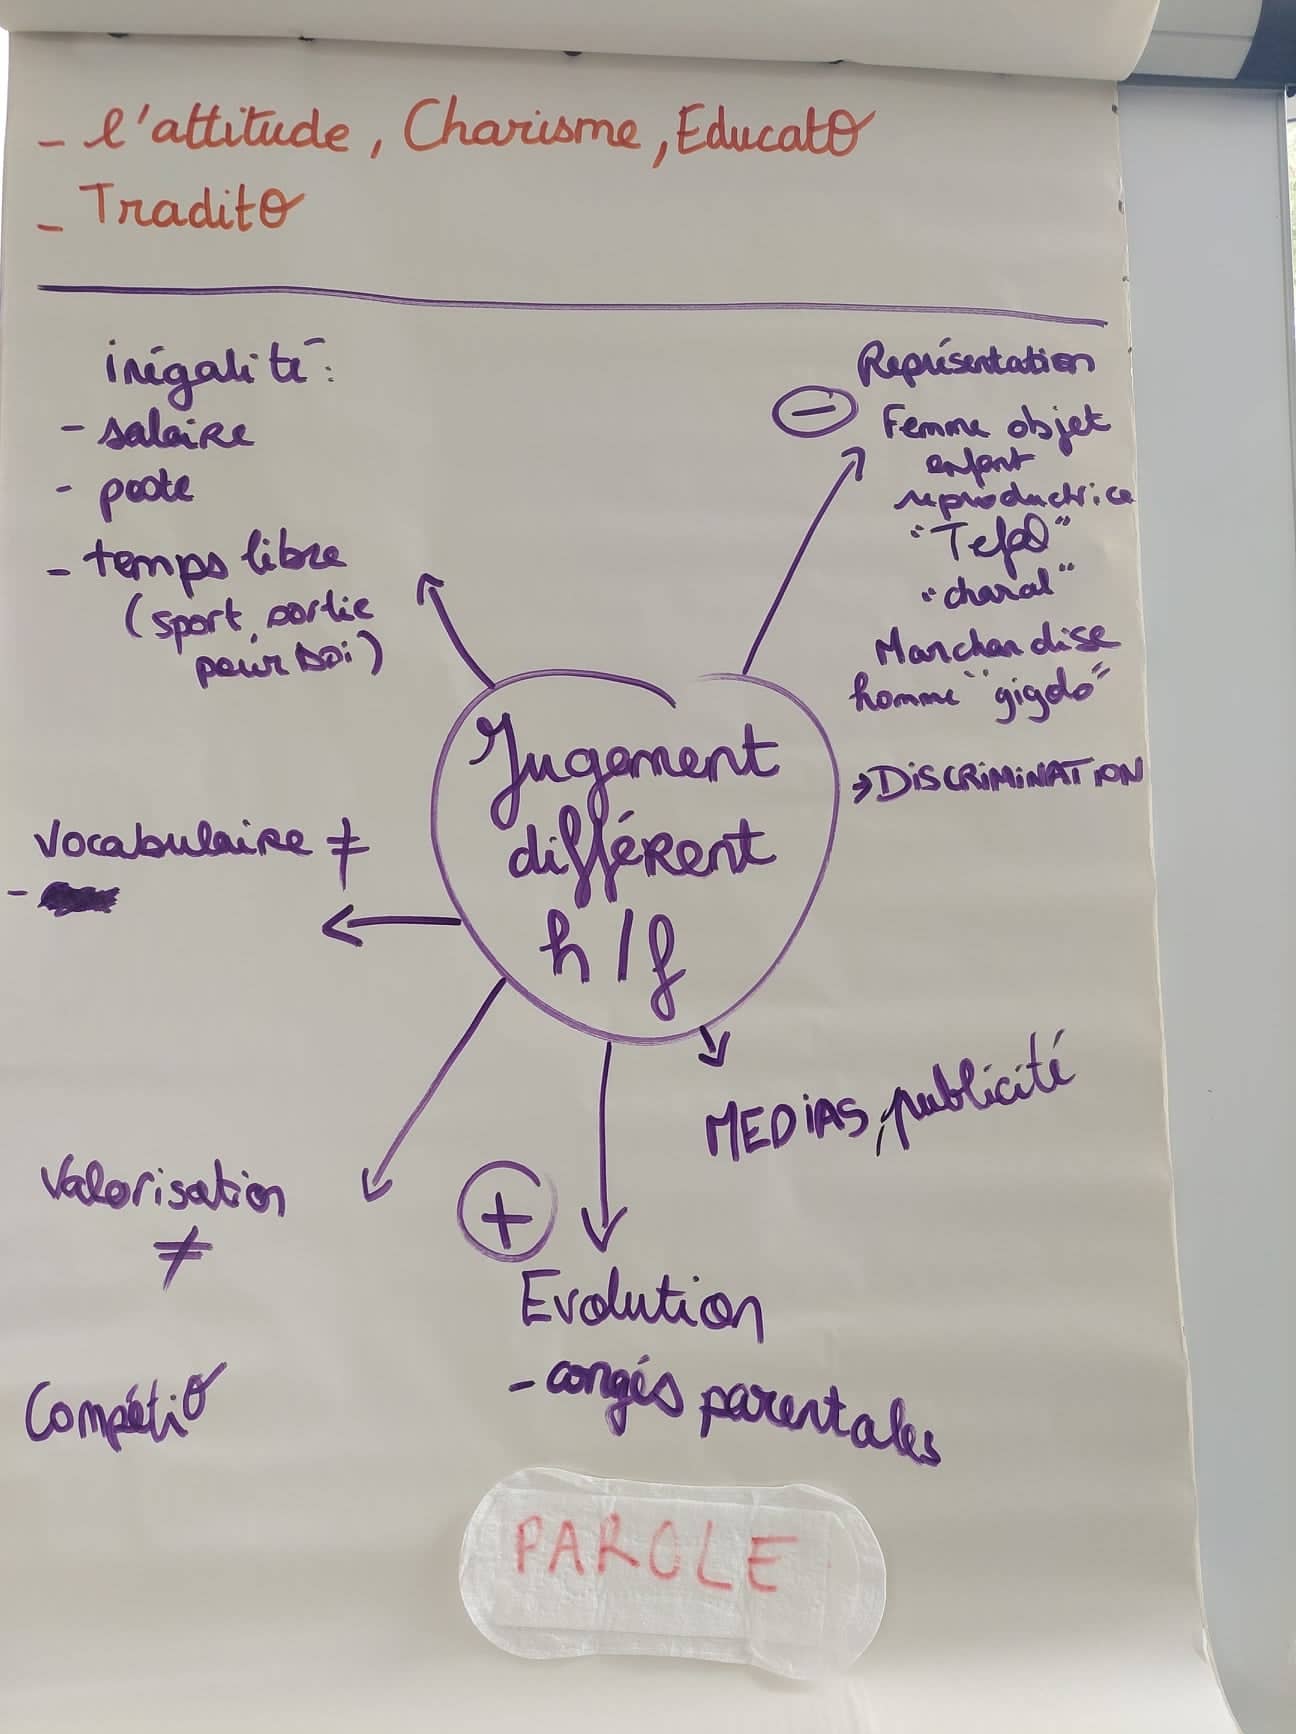 - l'attitude, Charisme, Educatθ
- Traditθ
inégalité :
- salaire
- poste
- temps libre
(sport, sortie
pour soi)
Représentation
⊖
Femme objet
enfant
reproductrice
"Tefal"
"charal"
Marchandise
homme "gigolo"
→ DISCRIMINATION
Jugement
différent
h/f
vocabulaire ≠
-
MEDIAS, publicité
Valorisation
≠
+
Evolution
- congés parentales
Compétiθ
PAROLE